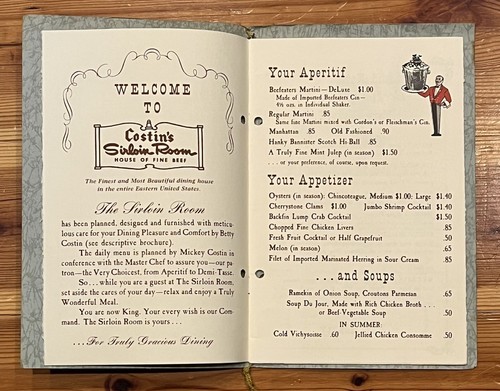 WELCOME
TO
Costin's
Sirloin Room
HOUSE OF FINE BEEF
The Finest and Most Beautiful dining house
in the entire Eastern United States.
The Sirloin Room
has been planned, designed and furnished with meticu-
lous care for your Dining Pleasure and Comfort by Betty
Costin (see descriptive brochure).
The daily menu is planned by Mickey Costin in
conference with the Master Chef to assure you—our pa-
tron—the Very Choicest, from Aperitif to Demi-Tasse.
So...while you are a guest at The Sirloin Room,
set aside the cares of your day—relax and enjoy a Truly
Wonderful Meal.
You are now King. Your every wish is our Com-
mand. The Sirloin Room is yours...
...For Truly Gracious Dining
Your Aperitif
Beefeaters Martini—DeLuxe $1.00
Made of Imported Beefeaters Gin—
4½ ozs. in Individual Shaker.
Regular Martini .85
Same fine Martini mixed with Gordon's or Fleischman's Gin.
Manhattan .85 Old Fashioned .90
Hanky Bannister Scotch Hi-Ball .85
A Truly Fine Mint Julep (in season) $1.50
...or your preference, of course, upon request.
Your Appetizer
Oysters (in season): Chincoteague, Medium $1.00; Large $1.40
Cherrystone Clams $1.00 Jumbo Shrimp Cocktail $1.40
Backfin Lump Crab Cocktail $1.50
Chopped Fine Chicken Livers .85
Fresh Fruit Cocktail or Half Grapefruit .50
Melon (in season) .65
Filet of Imported Marinated Herring in Sour Cream .85
...and Soups
Ramekin of Onion Soup, Croutons Parmesan .65
Soup Du Jour, Made with Rich Chicken Broth...
or Beef-Vegetable Soup .50
IN SUMMER:
Cold Vichyssoise .60 Jellied Chicken Consomme .50